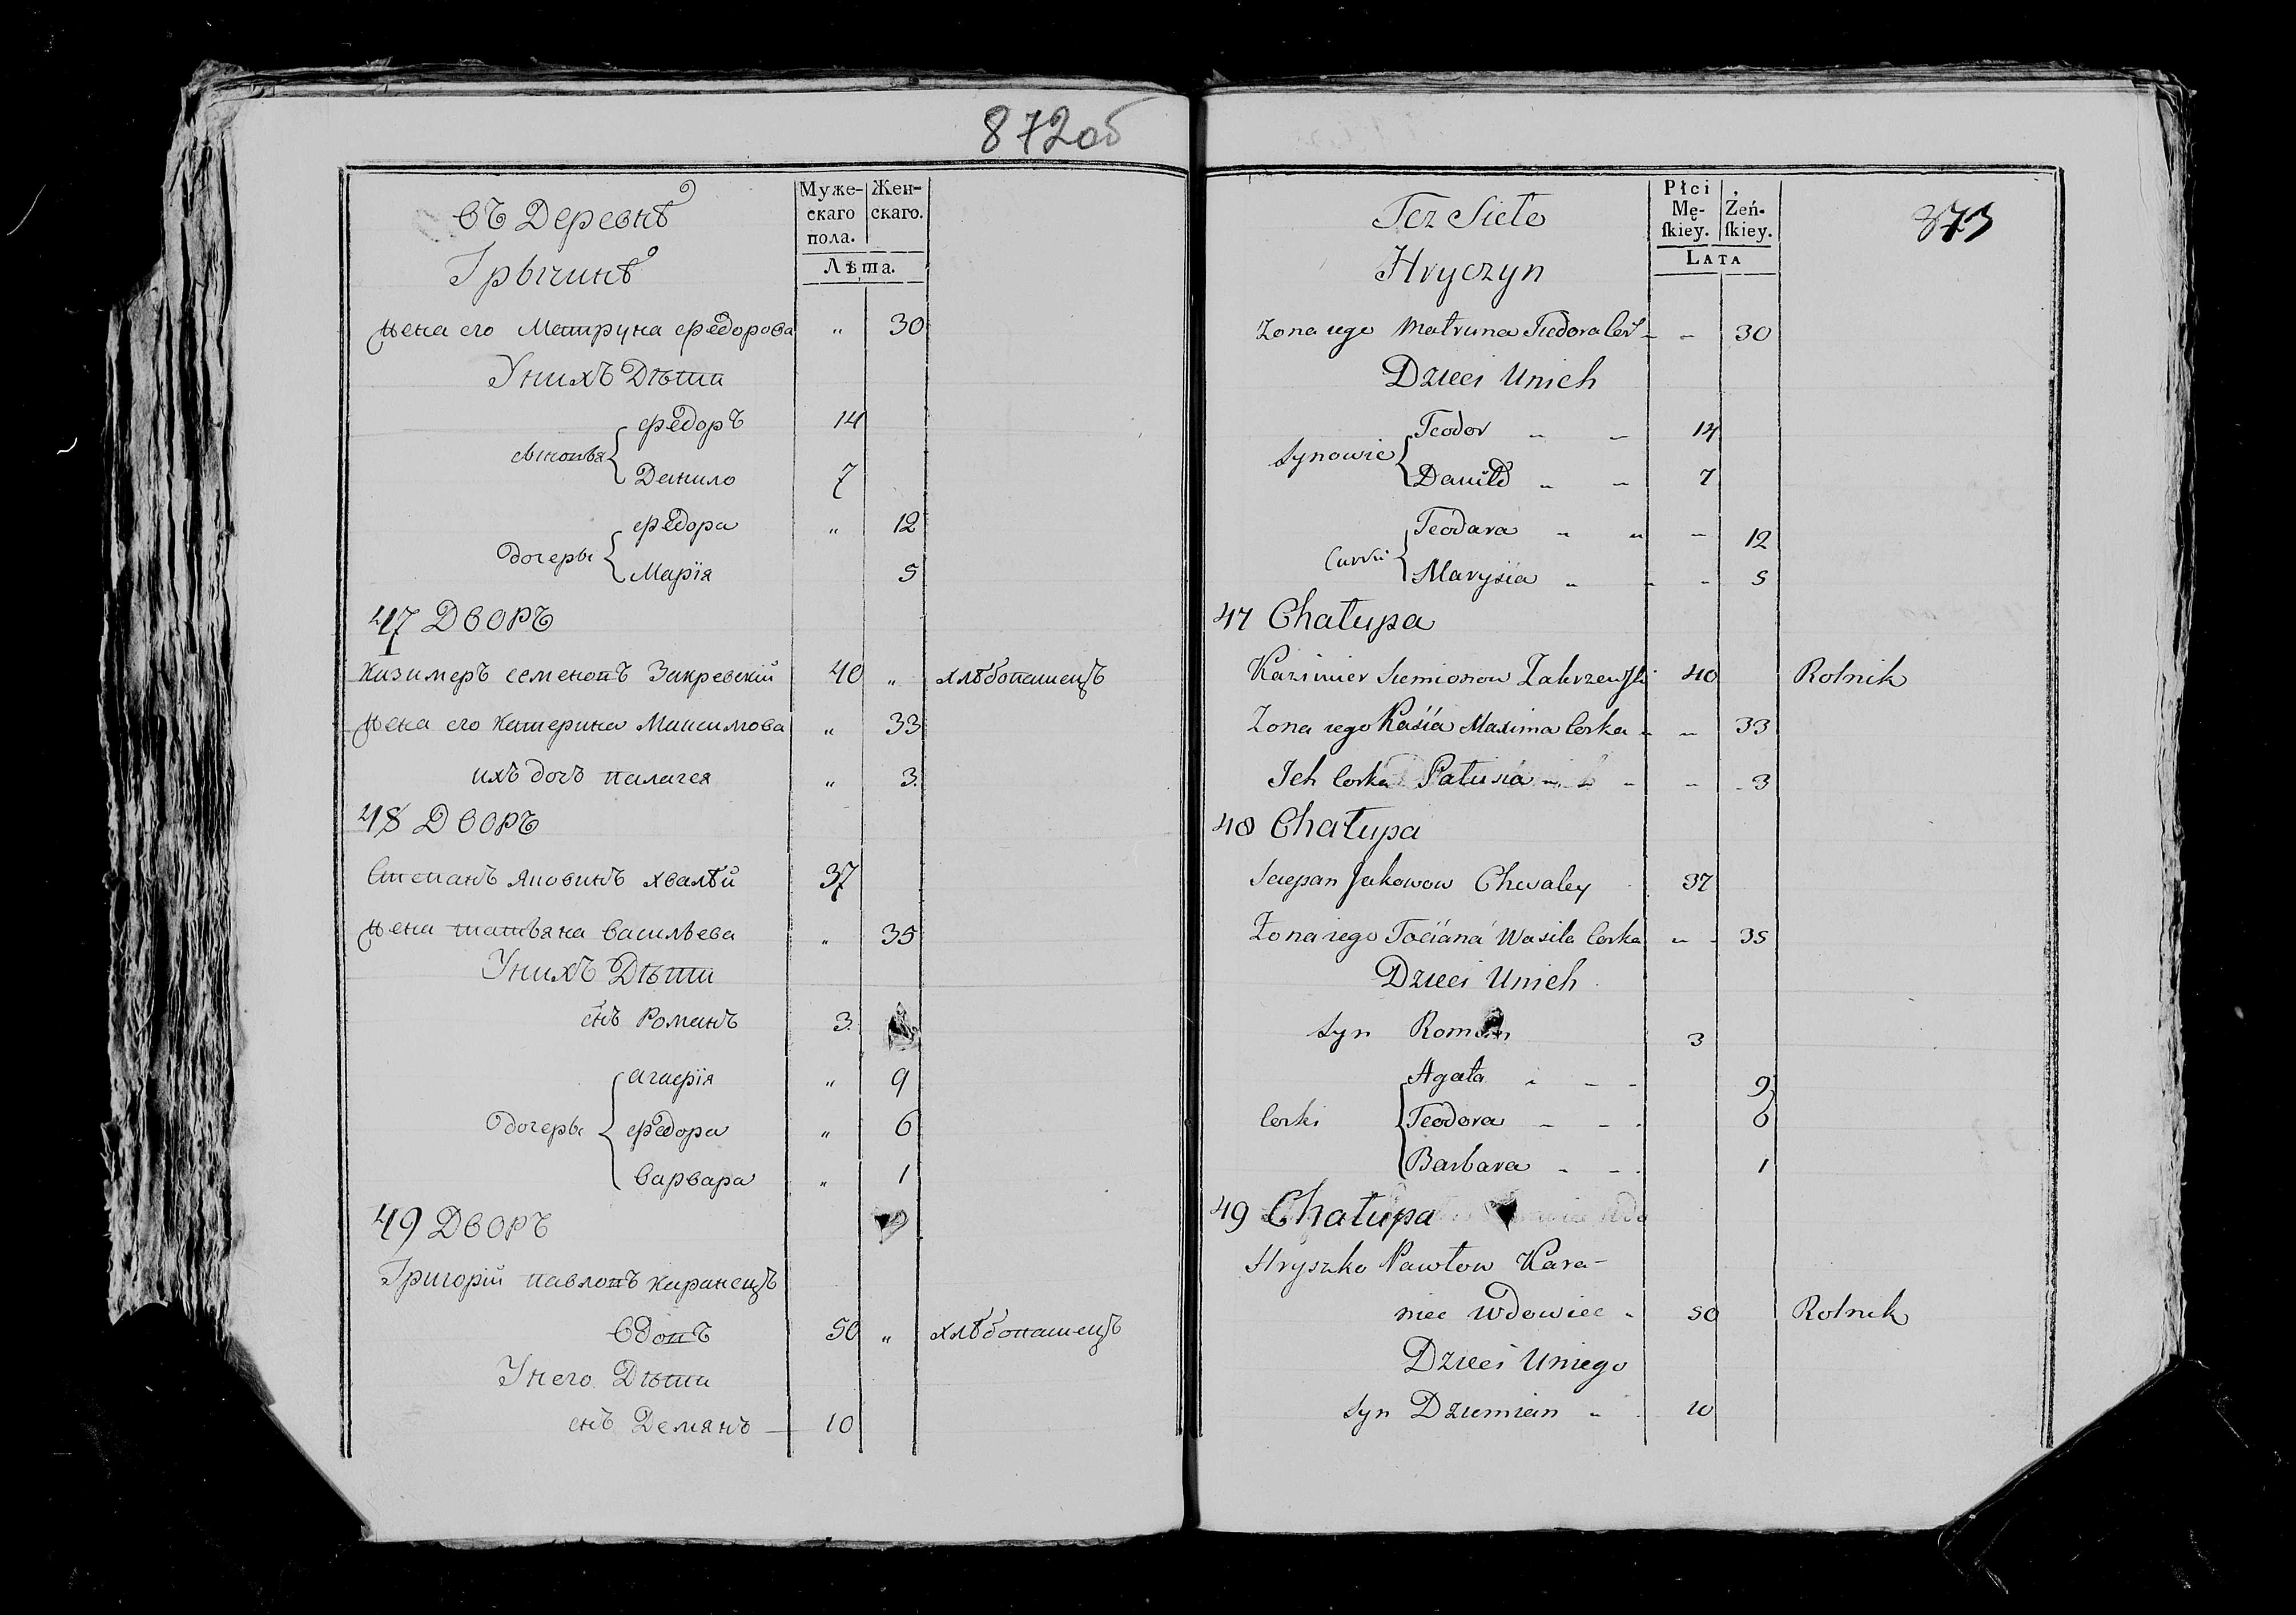 872об
Въ Деревнѣ
Грычинѣ
Муже-
скаго
пола.
Жен-
скаго.
Лѣта.
жена его Матруна Федорова " 30
У нихъ Дѣти
сыновья
Федоръ 14
Данило 7
дочеры
Федора " 12
Марія 5
47 Дворъ
Казимеръ Семеновъ Закревскій 40 " хлѣбопашецъ
жена его Катерина Максимова " 33
ихъ дочь Палагея " 3
48 Дворъ
Степанъ Яковинъ Хвалѣй 37
жена Татьяна Васильева " 35
У нихъ Дѣти
снъ Романъ 3
дочеры
Агаѳія " 9
Федора " 6
Варвара " 1
49 Дворъ
Григорій Павловъ Каранецъ
Вдовъ 50 " хлѣбопашецъ
У него Дѣти
снъ Демянъ 10
873
Tez Sieło
Hryczyn
Płci
Mę-
ſkiey.
Żeń-
ſkiey.
Lata
Zona iego Matruna Fiedora Cor - - 30
Dzieci Unich
Synowie
Teodor 14
Daniło 7
Curki
Teodara 12
Marysia 5
47 Chałupa
Kazimier Siemionow Zakrzewski 40 Rolnik
Zona iego Kasia Maxima Corka - - 33
Ich Corka Pałusia 3
48 Chałupa
Sciepan Jakowow Chwaley 37
Zona iego Tociana Wasila Corka - - 35
Dzieci Unich
Syn Roman 3
Corki
Agata 9
Teodora 6
Barbara 1
49 Chałupa
Hryszko Pawłow Kara-
niec Wdowiec 50 Rolnik
Dzieci Uniego
Syn Dziemian 10